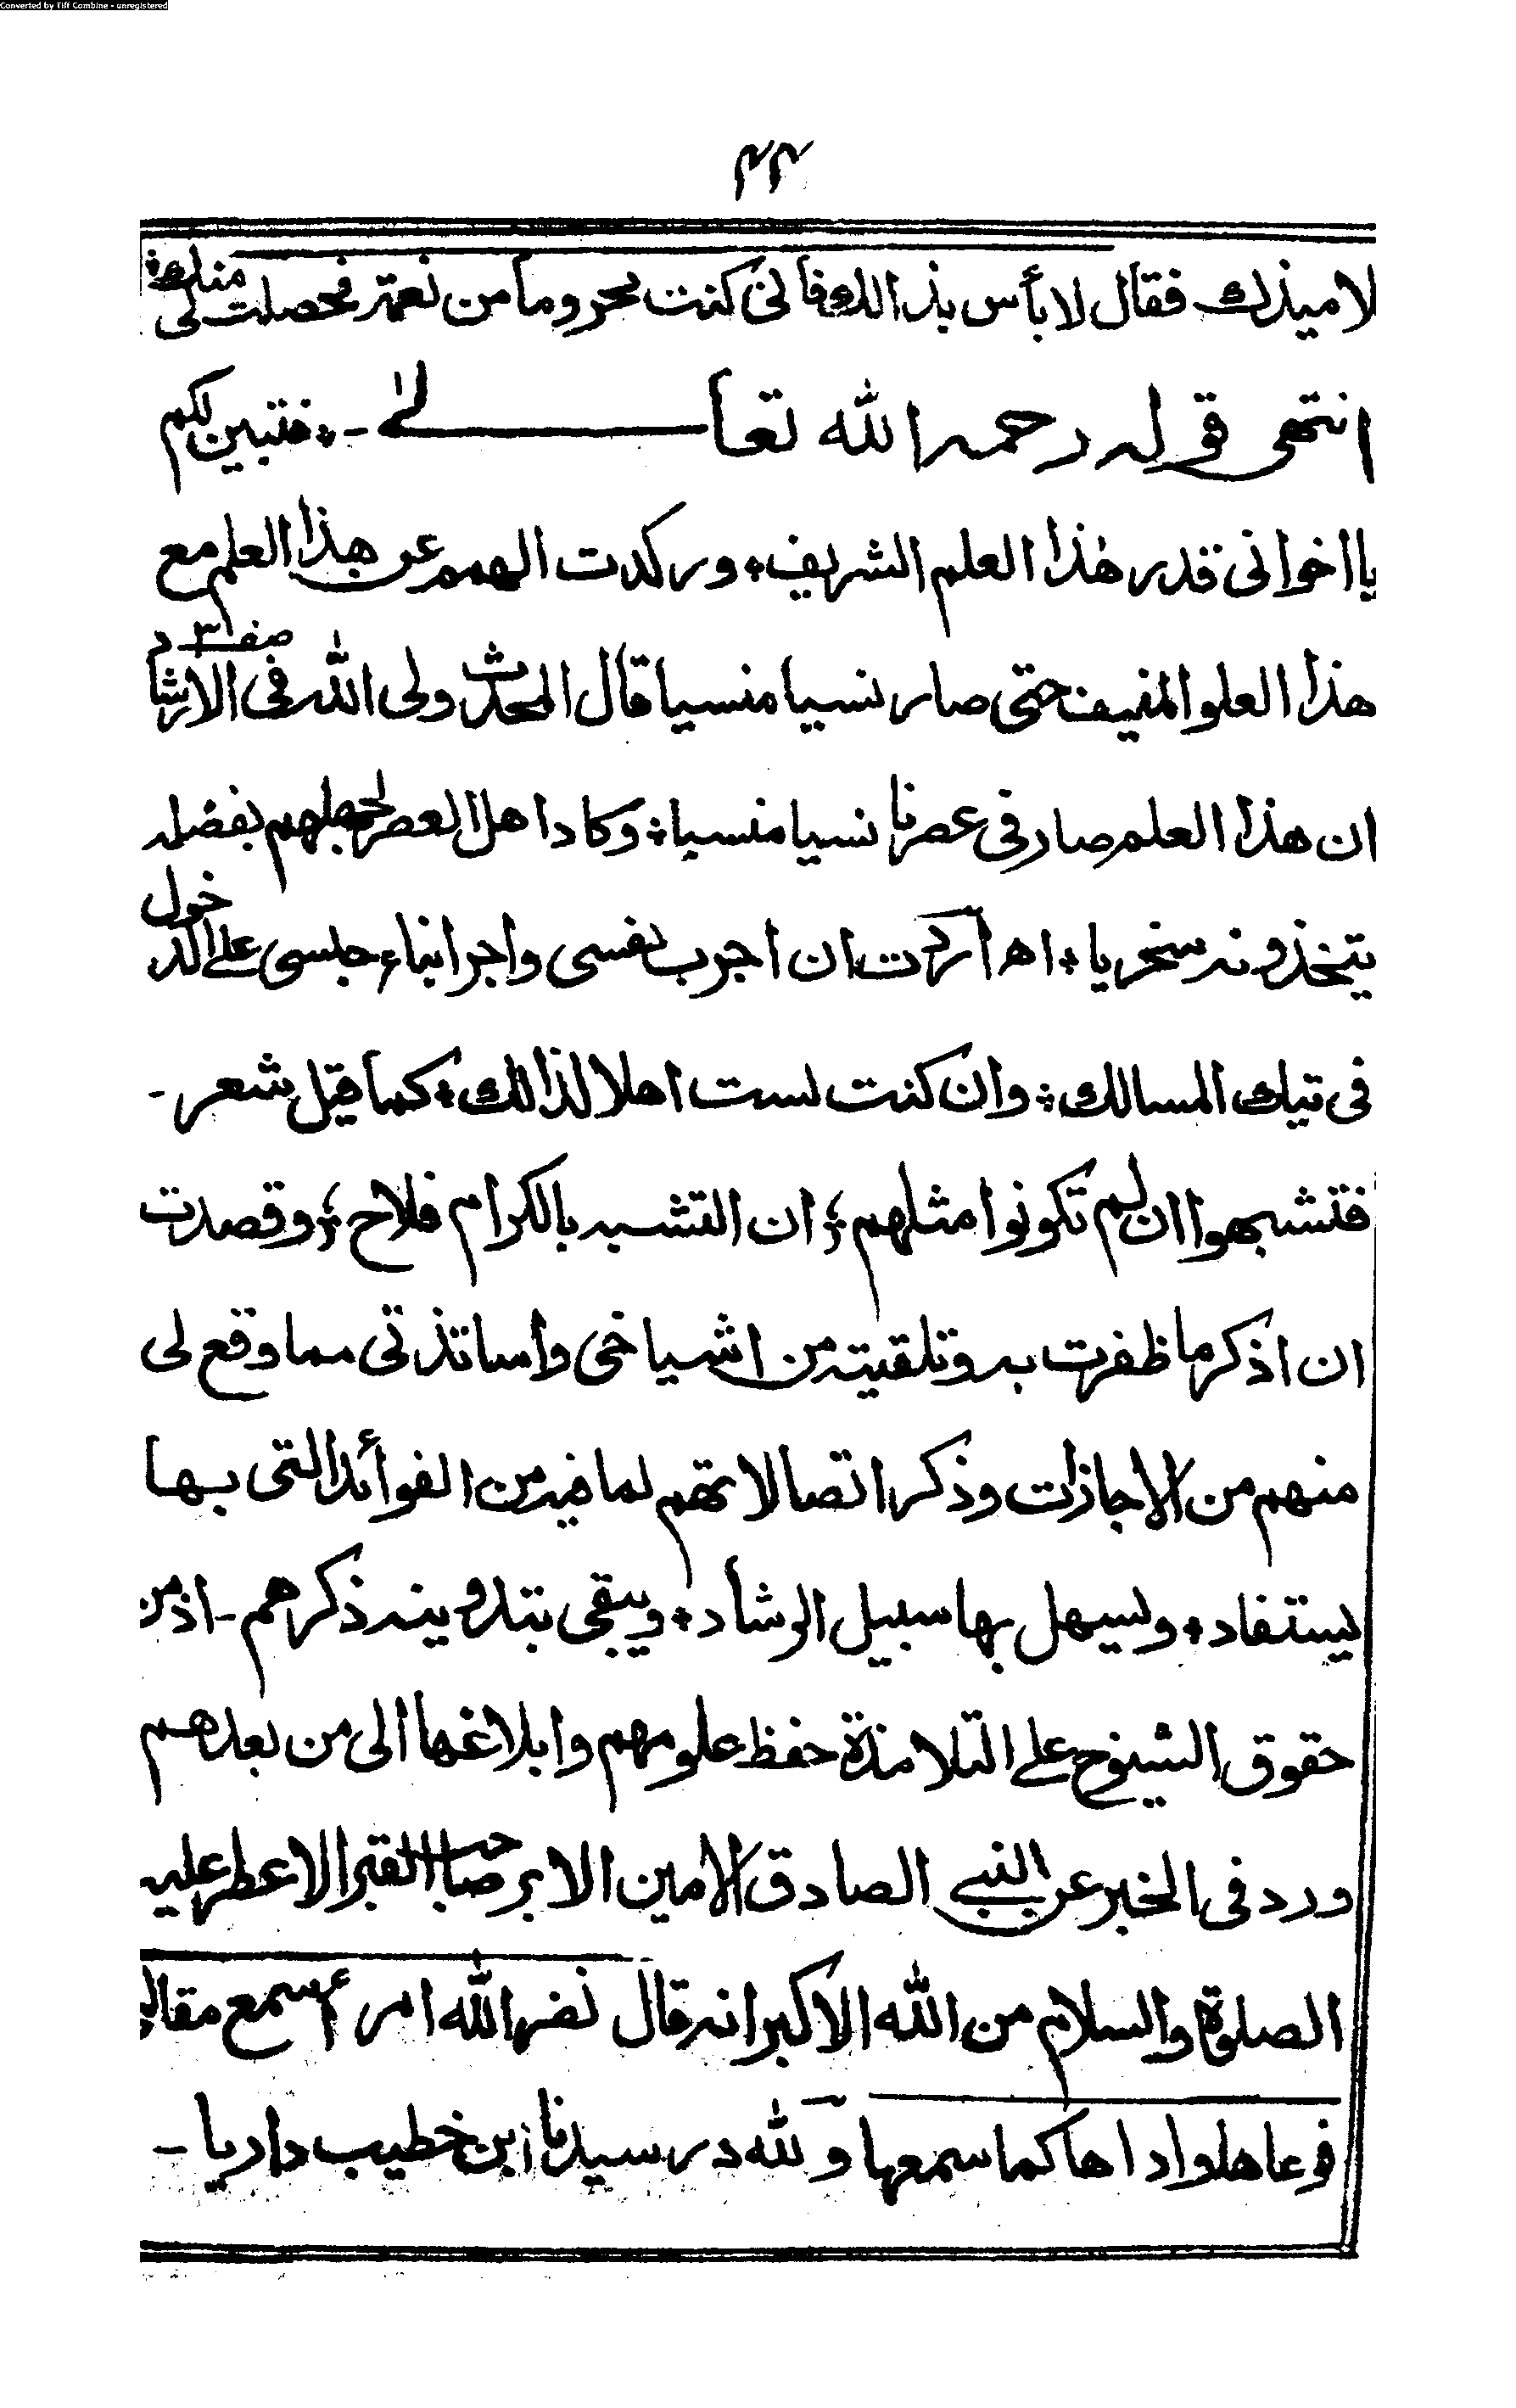 Converted by Tiff Combine - unregistered
٢٣
لاميذك فقال لا بأس بذالك فانى كنت محروما من نعمة فحصلت لى منك؞
انتهى قوله رحمه الله تعالےٰ -؞ فتبين لكم
يا اخوانى قدر هٰذا العلم الشريف؞ وركدت الهمم عن هذا العلم مع
هذا العلو المنيف حتى صار نسيا منسيا قال المحدث ولى الله فى الارشاد صفـ٣
ان هذا العلم صار فى عصرنا نسيا منسيا؞ وكاد اهل العصر لجهلهم بفضله
يتخذونه سخريا؞ اھ أردت ان اجرب نفسى واجر ابناء جلسى على الدخول
فى تيك المسالك؞ وان كنت لست اهلا لذالك؞ كما قيل شعر-
فتشبهوا ان لم تكونوا مثلهم ؛ ان التشبه بالكرام فلاح ؛ وقصدت
ان اذكر ما ظفرت به وتلقيته من اشياخى واساتذتى مما وقع لى
منهم من الاجازات وذكر اتصالاتهم لما فيه من الفوائد التى بها
يستفاد؞ ويسهل بها سبيل الرشاد؞ ويبقى بتدوينه ذكرهم - اذ من
حقوق الشيوخ على التلامذة حفظ علومهم وابلاغها الى من بعدهم
ورد فى الخبر عن النبي الصادق الامين الابر صاحب القبر الاعطر عليه
الصلوة والسلام من الله الاكبر انه قال نضر الله امرأ سمع مقالتى
فوعاها واداها كما سمعها ولله در سيدنا ابن خطيب داريا -